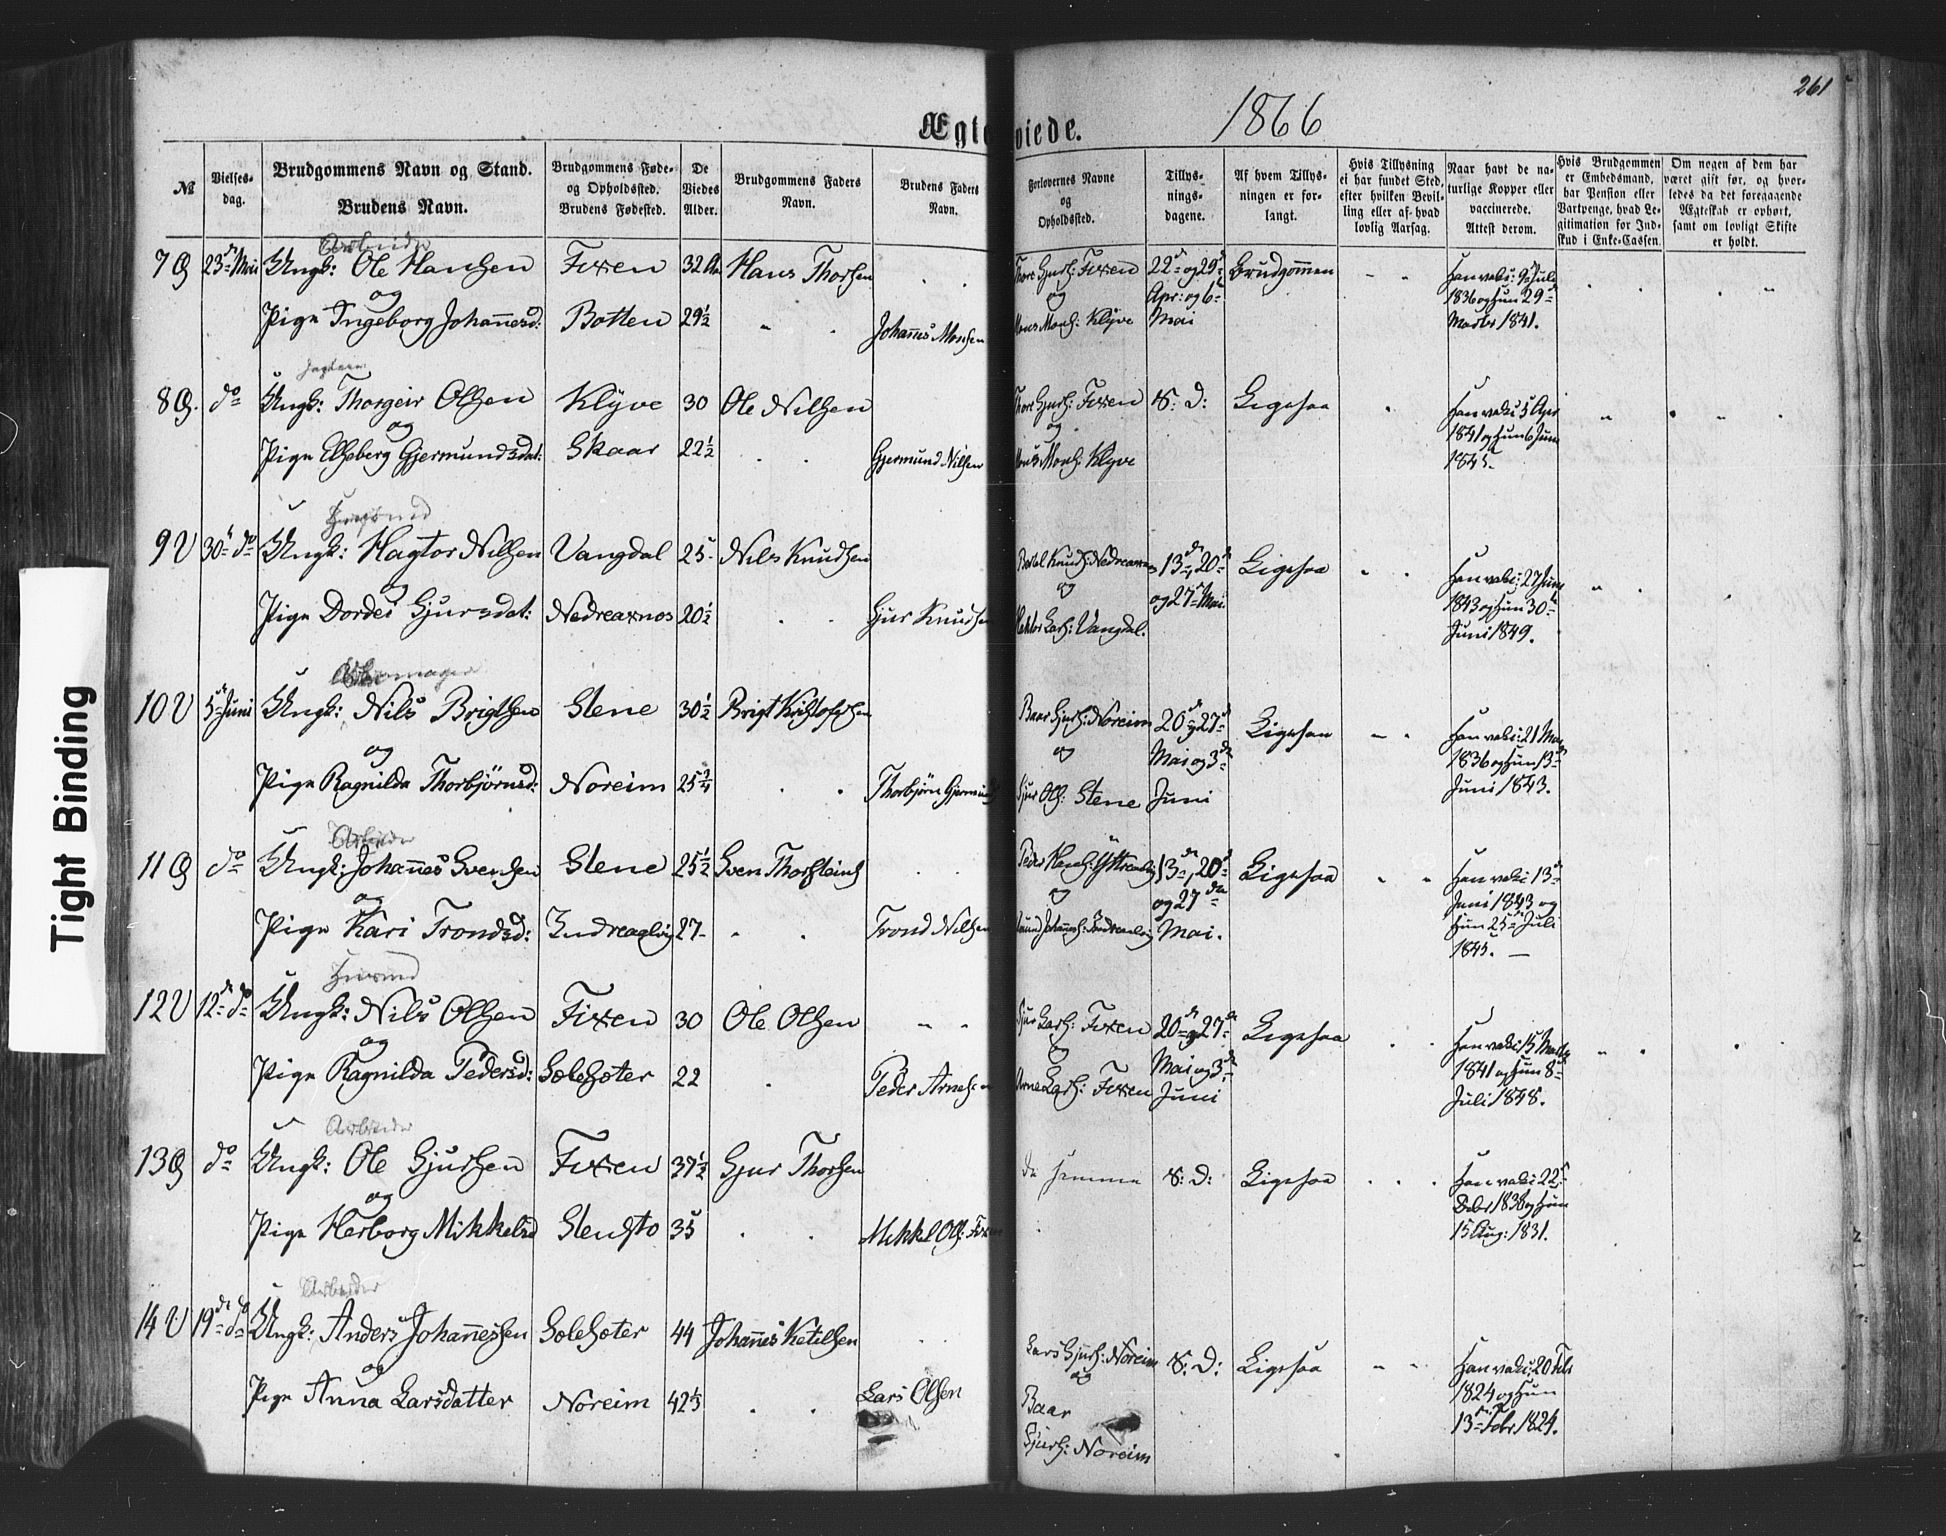 261
Ægteviede. 1866
№
Vielses-
dag.
Brudgommens Navn og Stand.
Brudens Navn.
Brudgommens Føde-
og Opholdssted.
Brudens Fødested.
De
Viedes
Alder.
Brudgommens Faders
Navn.
Brudens Faders
Navn.
Forlovernes Navne
og
Opholdssted.
Tillys-
nings-
dagene.
Af hvem Tillys-
ningen er for-
langt.
Hvis Tillysning
ei har fundet Sted,
efter hvilken Bevil-
ling eller af hvad
lovlig Aarsag.
Naar havt de na-
turlige Kopper eller
vaccinerede.
Attest derom.
Hvis Brudgommen
er Embedsmand,
har Pension eller
Vartpenge, hvad Le-
gitimation for Ind-
skud i Enke-Cassen.
Om nogen af dem har
været gift før, og hvor-
ledes da det foregaaende
Ægteskab er ophørt,
samt om lovligt Skifte
er holdt.
Arbeider
7 23de Mai Ungk: Ole Hansen Fixen 32 Hans Thorsen Fixen 22de og 29de Brudgommen Han vakc:
og og Apr: og 6te 1836 og hun 29de
Pige Ingeborg Johannesd: Botten 29½ Johannes Monsen Mons Mons: Klyve Mai Marts 1841.
8 do Ungk: Thorgeir Olsen Klyve 30 Ole Nilsen Fixen S: D: Ligesaa Han vakc 5 Apr
og og 1841 og hun 6 Juni
Pige Elseberg Gjermundsdat: Skaar 22½ Gjermund Nilsen Mons Mons: Klyve 1845.
Husmd
9 V 30te do Ungk: Hagtor Nilsen Vangdal 25 Nils Knudsen 13de, 20de Ligesaa Han vakc: 27 Juni
og og og 27de Mai 1843 og hun 30te
Pige Dordei Gjursdat: Nedreaxnes 20½ Gjur Knudsen Lars: Vangdal. Juni 1849.
10 V 5te Juni Ungk: Nils Brigtsen Stene 30½ Brigt Kristofersen Baar Gjurs: Noreim 20de og 27de Ligesaa Han vakc: 21 Mai
og og Mai og 3de 1836 og hun 13de
Pige Ragnilda Thorbjørnsd: Noreim 25¾ Thorbjørn Gjermunds Gjur Ols: Stene Juni Juni 1843.
Arbeider
11 do Ungk: Johannes Svensen Stene 25½ Sven Thorsteins Peder 13de, 20de Ligesaa Han vakc 13de
og og og 27de Juni 1843 og
Pige Kari Trondsd: 27 Trond Nilsen Mai. hun 25de Juli
1845.
Husmd
12 V 12te do Ungk: Nils Olsen Fixen 30 Ole Olsen Gjur Lars: Fixen 20de og 27de Ligesaa Han vakc 15 Marts
og og Mai og 3de 1841 og hun 8de
Pige Ragnilda Pedersd: Solesæter 22 Peder Arnesen Arne Lars: Fixen Juni Juli 1848.
Arbeider
13 do Ungk: Ole Gjursen Fixen 37½ Gjur Thorsen De samme S: D: Ligesaa Han vakc 22de
og Decbr 1838 og hun
Pige Herborg Mikkelsd Stensto 35 Mikkel Ols: Fixen 15 Aug: 1831.
Arbeider
14 V 19de do Ungk: Anders Johannessen Solesæter 44 Johannes Ketilsen Lars Gjurs: Noreim S: D: Ligesaa Han vakc: 20 Feb
og og 1824 og hun
Pige Anna Larsdatter Noreim 42½ Lars Olsen Baar 13de Febr 1824.
Gjurs: Noreim
Tight Binding